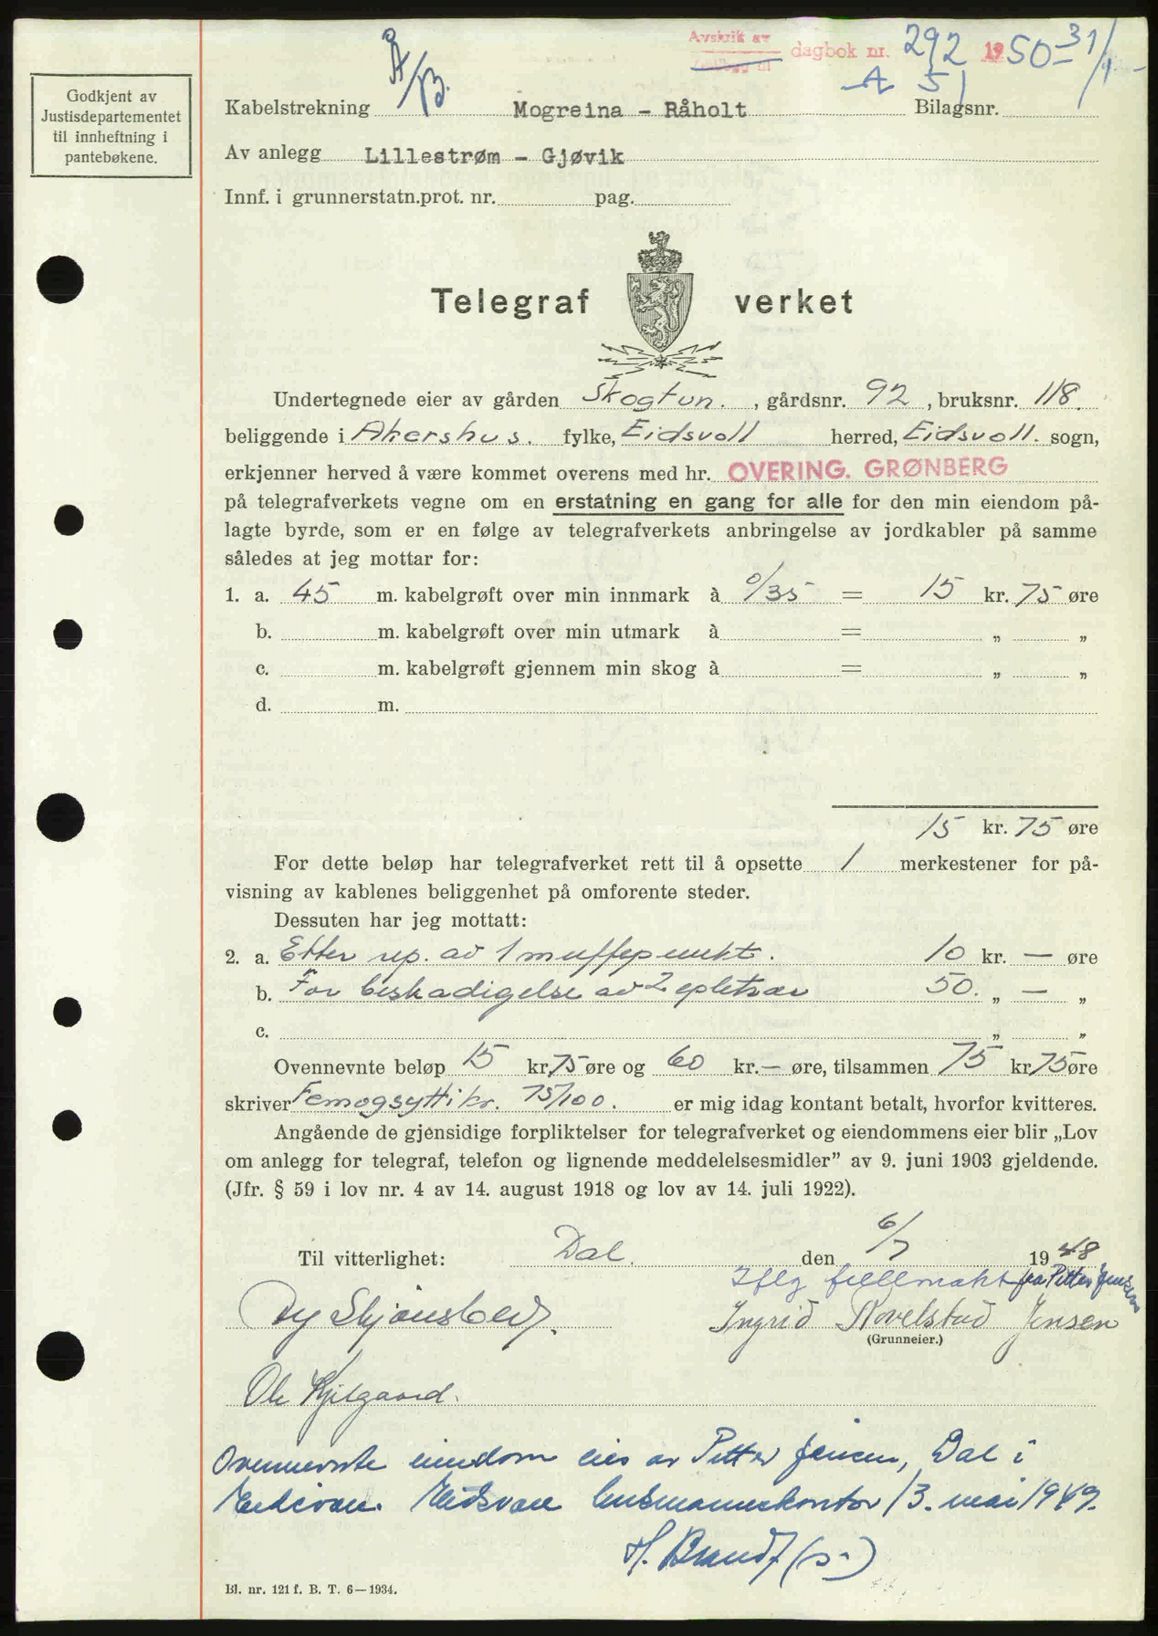 Avskrik av dagbok nr. 292 1950 31/1
A 51
Å/B.
Godkjent av
Justisdepartementet
til innheftning i
pantebøkene.
Kabelstrekning Mogreina - Råholt Bilagsnr.
Av anlegg Lillestrøm - Gjøvik
Innf. i grunnerstatn.prot. nr. pag.
Telegraf verket
Undertegnede eier av gården Skogtun. , gårdsnr. 92 , bruksnr. 118.
beliggende i Akershus. fylke, Eidsvoll herred, Eidsvoll. sogn,
erkjenner herved å være kommet overens med hr. OVERING. GRØNBERG
på telegrafverkets vegne om en erstatning en gang for alle for den min eiendom på-
lagte byrde, som er en følge av telegrafverkets anbringelse av jordkabler på samme
således at jeg mottar for:
1. a. 45 m. kabelgrøft over min innmark à 0/35 = 15 kr. 75 øre
b. m. kabelgrøft over min utmark à = „ „
c. m. kabelgrøft gjennem min skog à = „ „
d. m.
15 kr. 75 øre
For dette beløp har telegrafverket rett til å opsette 1 merkestener for på-
visning av kablenes beliggenhet på omforente steder.
Dessuten har jeg mottatt:
2. a. Etter rep. av 1 muffepunkt. 10 kr. — øre
b. For beskadigelse av 2 epletrær 50. „ — „
c. „ „
Ovennevnte beløp 15 kr. 75 øre og 60 kr. — øre, tilsammen 75 kr. 75 øre
skriver Femogsytti kr. 75/100. er mig idag kontant betalt, hvorfor kvitteres.
Angående de gjensidige forpliktelser for telegrafverket og eiendommens eier blir „Lov
om anlegg for telegraf, telefon og lignende meddelelsesmidler” av 9. juni 1903 gjeldende.
(Jfr. § 59 i lov nr. 4 av 14. august 1918 og lov av 14. juli 1922).
Til vitterlighet: Dal. den 6/7 1948
Iflg fullmakt fra Petter Jensen
Ingrid Hovelstad Jensen
(Grunneier.)
Ole Kjelgaard.
Ovennevnte eiendom eies av Petter Jensen, Dal i
Eidsvoll. Eidsvoll lensmannskontor 13. mai 1949.
H. Brandt (s.)
Bl. nr. 121 f. B. T. 6—1934.